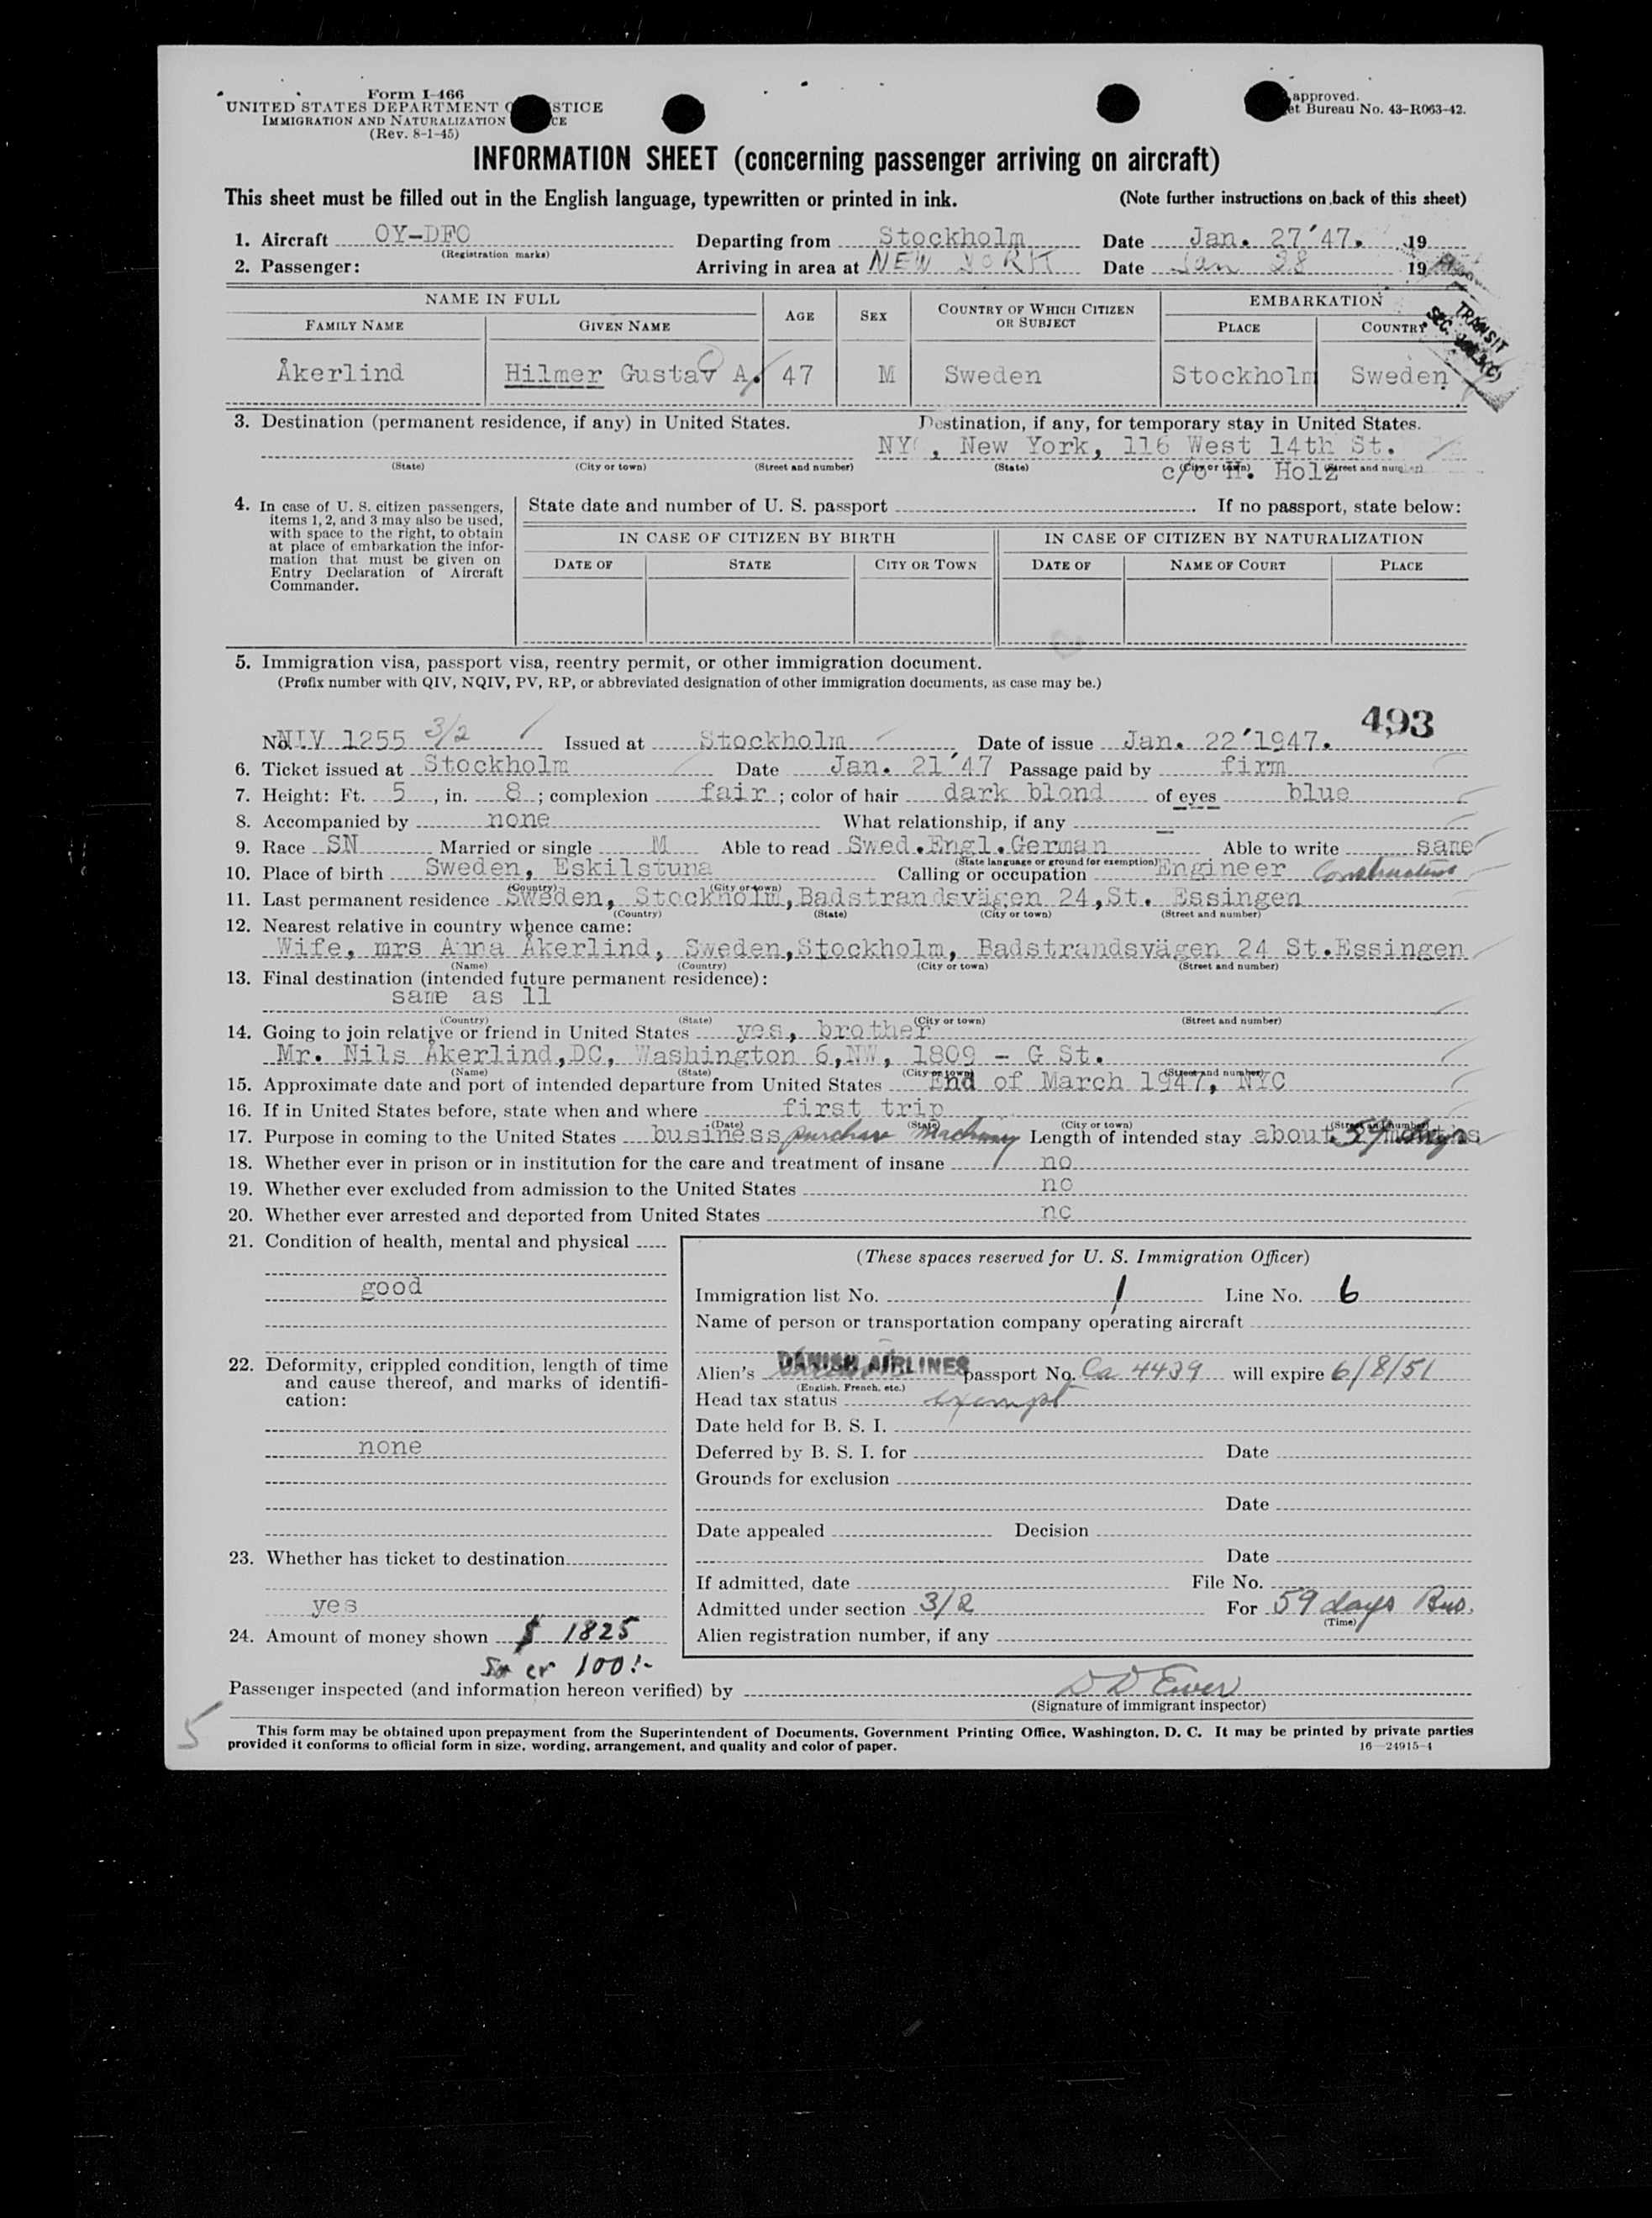 Form I-466
UNITED STATES DEPARTMENT O STICE
IMMIGRATION AND NATURALIZATION CE
(Rev. 8-1-45)
approved.
et Bureau No. 43-R063-42.
INFORMATION SHEET (concerning passenger arriving on aircraft)
This sheet must be filled out in the English language, typewritten or printed in ink. (Note further instructions on back of this sheet)
1. Aircraft OY-DFO Departing from Stockholm Date Jan. 27'47. 19
(Registration marks)
2. Passenger: Arriving in area at NEW YORK Date Jan 28 19
NAME IN FULL AGE SEX COUNTRY OF WHICH CITIZEN OR SUBJECT EMBARKATION
FAMILY NAME GIVEN NAME PLACE COUNTRY
TRANSIT
SEC.
Åkerlind Hilmer Gustav A. 47 M Sweden Stockholm Sweden
3. Destination (permanent residence, if any) in United States. Destination, if any, for temporary stay in United States.
NY , New York, 116 West 14th St.
(State) (City or town) (Street and number) (State) (City or town) (Street and number)
c/o H. Holz
4. In case of U. S. citizen passengers, items 1, 2, and 3 may also be used, with space to the right, to obtain at place of embarkation the information that must be given on Entry Declaration of Aircraft Commander.
State date and number of U. S. passport . If no passport, state below:
IN CASE OF CITIZEN BY BIRTH IN CASE OF CITIZEN BY NATURALIZATION
DATE OF STATE CITY OR TOWN DATE OF NAME OF COURT PLACE
5. Immigration visa, passport visa, reentry permit, or other immigration document.
(Prefix number with QIV, NQIV, PV, RP, or abbreviated designation of other immigration documents, as case may be.)
493
No. NIV 1255 3/2 Issued at Stockholm , Date of issue Jan. 22'1947.
6. Ticket issued at Stockholm Date Jan. 21'47 Passage paid by firm
7. Height: Ft. 5 , in. 8 ; complexion fair ; color of hair dark blond of eyes blue
8. Accompanied by none What relationship, if any —
9. Race SN Married or single M Able to read Swed.Engl.German Able to write same
(State language or ground for exemption)
10. Place of birth Sweden, Eskilstuna Calling or occupation Engineer Construction
(Country) (City or town)
11. Last permanent residence Sweden, Stockholm, Badstrandsvägen 24,St. Essingen
(Country) (State) (City or town) (Street and number)
12. Nearest relative in country whence came:
Wife, mrs Anna Åkerlind, Sweden,Stockholm, Badstrandsvägen 24 St.Essingen
(Name) (Country) (City or town) (Street and number)
13. Final destination (intended future permanent residence):
same as 11
(Country) (State) (City or town) (Street and number)
14. Going to join relative or friend in United States yes, brother
Mr. Nils Åkerlind,DC, Washington 6,NW, 1809 - G St.
(Name) (State) (City or town) (Street and number)
15. Approximate date and port of intended departure from United States End of March 1947, NYC
16. If in United States before, state when and where first trip
(Date) (State) (City or town) (Street and number)
17. Purpose in coming to the United States business purchase machinery Length of intended stay about 59 days
18. Whether ever in prison or in institution for the care and treatment of insane no
19. Whether ever excluded from admission to the United States no
20. Whether ever arrested and deported from United States no
21. Condition of health, mental and physical
good
22. Deformity, crippled condition, length of time and cause thereof, and marks of identification:
none
23. Whether has ticket to destination
yes
24. Amount of money shown $ 1825
Sw cr 100:-
(These spaces reserved for U. S. Immigration Officer)
Immigration list No. 1 Line No. 6
Name of person or transportation company operating aircraft
DANISH AIRLINES
Alien's passport No. Ca 4439 will expire 6/8/51
(English, French, etc.)
Head tax status exempt
Date held for B. S. I.
Deferred by B. S. I. for Date
Grounds for exclusion
Date
Date appealed Decision
Date
If admitted, date File No.
Admitted under section 3/2 For 59 days Bus.
(Time)
Alien registration number, if any
Passenger inspected (and information hereon verified) by D D Ewer
(Signature of immigrant inspector)
5
This form may be obtained upon prepayment from the Superintendent of Documents, Government Printing Office, Washington, D. C. It may be printed by private parties
provided it conforms to official form in size, wording, arrangement, and quality and color of paper. 16—24915-1